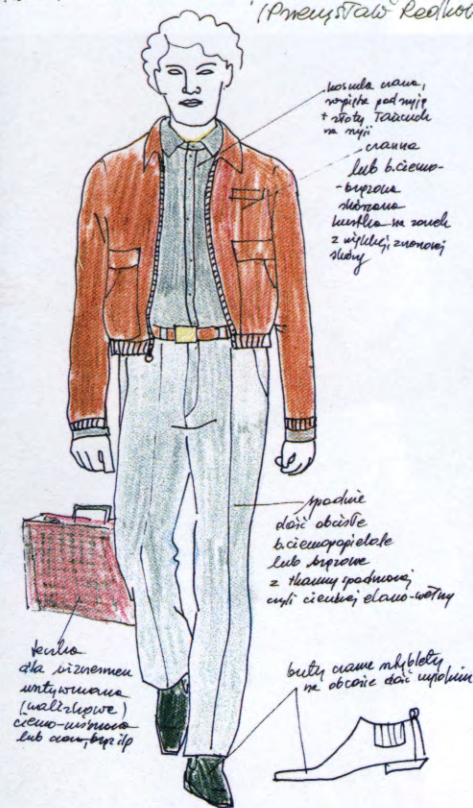 (Przemysław
koszula czarna,
rozpięta pod szyją
+ złoty łańcuch
na szyji
czarna
lub b. ciemno-
-brązowa
skórzana
kurtka na zamek
z miękkiej,
skóry
spodnie
dość obcisłe
b. ciemnopopielate
lub brązowe
z tkaniny spodniowej
czyli cienkiej elano-wełny
teczka
dla biznesmen
usztywniana
(walizkowa)
ciemno-wiśniowa
lub czarna, brąz itp
buty czarne sztyblety
na obcasie dość wysokim